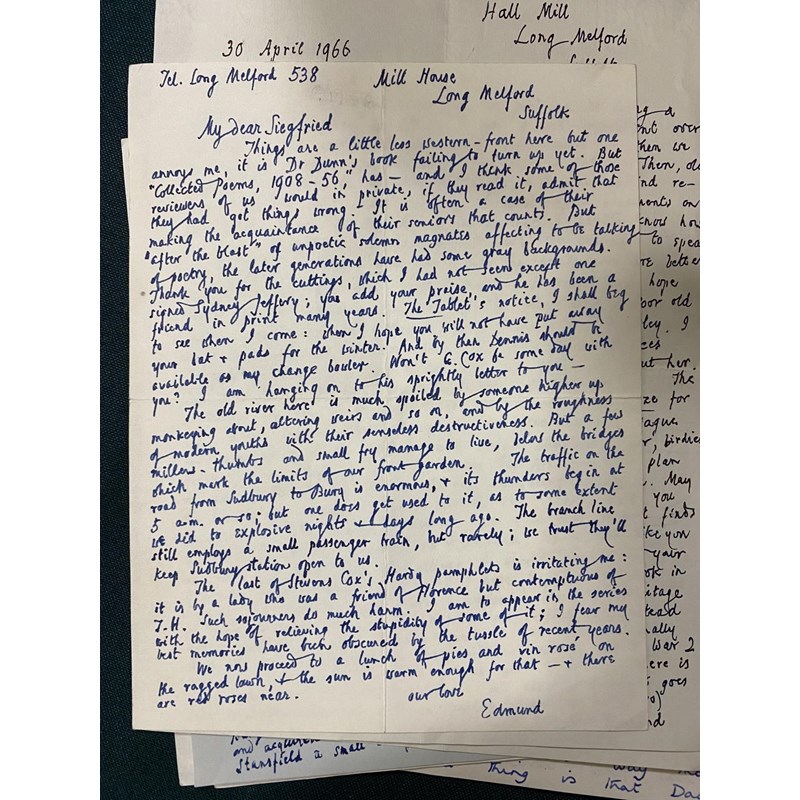 Hall Mill
Long Melford
Suffolk
30 April 1966
Tel. Long Melford 538
Mill House
Long Melford
Suffolk
My dear Siegfried
Things are a little less western-front here but one
annoys me, it is Dr Dunn's book failing to turn up yet. But
"Collected Poems, 1908-56," has — and I think some of those
reviewers of us would in private, if they read it, admit that
they had got things wrong. It is often a case of their
making the acquaintance of their seniors that counts. But
"after the blast" of unpoetic solemn magnates affecting to be talking
of poetry, the later generations have had some gray backgrounds.
Thank you for the cuttings, which I had not seen except one
signed Sydney Jeffery; you add your praise, and he has been a
friend in print many years. The Tablet's notice, I shall beg
to see when I come: when I hope you will not have put away
your bat + pads for the winter. And by then Dennis should be
available as my change bowler. Won't G. Cox be some day with
you? I am hanging on to his sprightly letter to you —
The old river here is much spoiled by someone higher up
monkeying about, altering weirs and so on, and by the roughness
of modern youths with their senseless destructiveness. But a few
millers-thumbs and small fry manage to live, below the bridges
which mark the limits of our front garden. The traffic on the
road from Sudbury to Bury is enormous, + its thunders begin at
5 a.m. or so; but one does get used to it, as to some extent
we did to explosive nights + days long ago. The branch line
still employs a small passenger train, but rarely; we trust they'll
keep Sudbury station open to us.
The last of Stevens Cox's Hardy pamphlets is irritating me:
it is by a lady who was a friend of Florence but contemptuous of
T.H. Such sojourners do much harm. I am to appear in the series
with the hope of relieving the stupidity of some of it; I fear my
best memories have been obscured by the tussle of recent years.
We now proceed to a lunch of pies and vin rosé on
the ragged lawn, + the sun is warm enough for that — + there
are red roses near.
our love
Edmund
and
Stansfield a small
thing is that